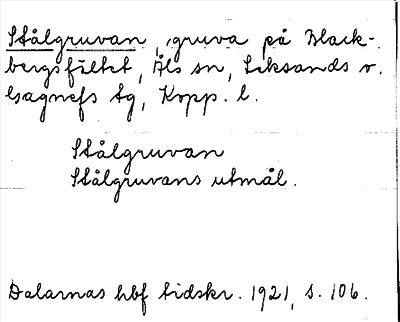 Stålgruvan, gruva på Black-
bergsfältet, Åls sn, Leksands o.
Gagnefs tg, Kopp. l.
Stålgruvan
Stålgruvans utmål.
Dalarnas hbf tidskr. 1921, s. 106.